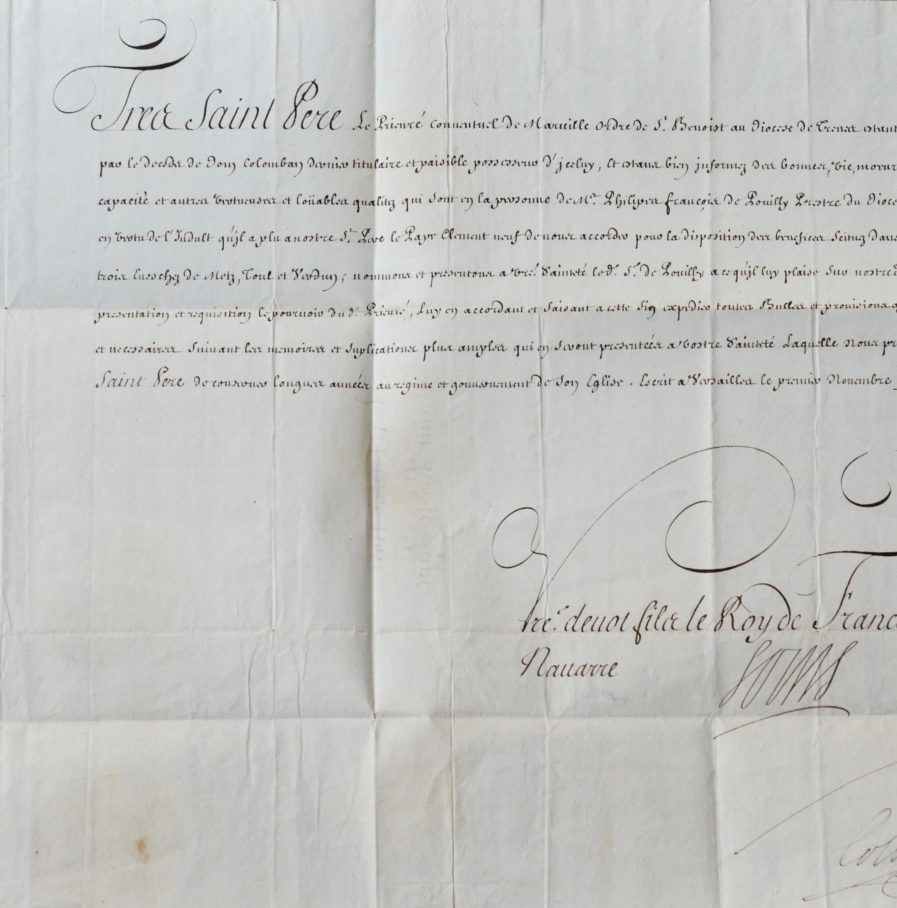 Tres Saint Pere Le Prieuré conventuel de Maruille ordre de St. Benoist au Diocese de Treues estant
par le deceds de Dom Colomban dernier titulaire et paisible possesseur d'jceluy, Et estans bien informez des bonnes, vie, mœurs
capacité et autres vertueuses et loüables qualitez qui sont en la personne de Mr. Philipes françois de Pouilly Prestre du Dioce
en vertu de l'Indult qu'jl a plu a nostre St. Pere le Pape Clement neuf de nous accorder pour la disposition des benefices scituez dans
trois Eueschez de Metz, Toul et Verdun; nommons et presentons a Vre. Sainteté led. Sr. de Pouilly a ce qu'jl luy plaise sur nostre
presentation et requisition le pouruoir dud. Prieuré, Luy en accordant et faisant a cette fin expedier toutes Bulles et prouisions
et necessaires suiuant les memoires et suplications plus amples qui en seront presentées a Vostre Sainteté Laquelle Nous pr
Saint Pere de conseruer longues années au regime et gouuernement de son Eglise. Escrit a Versailles le premier Nouembre
Vre. deuot fils le Roy de Franc
Nauarre
Louis
Col